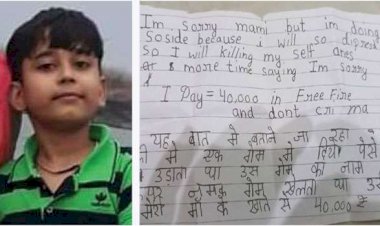 Im sorry mami but im doing
soside because i will so dipresd
so I will killing my self
more time saying Im sorry
I Pay = 40,000 in Free Fire
and dont cri ma
यह बात मे बताने जा रहा
मे एक गेम मे दिया पैसे
उडाता था उस गेम का नाम
गेम खेलता था
मेरी माँ के खाते से 40,000 ₹